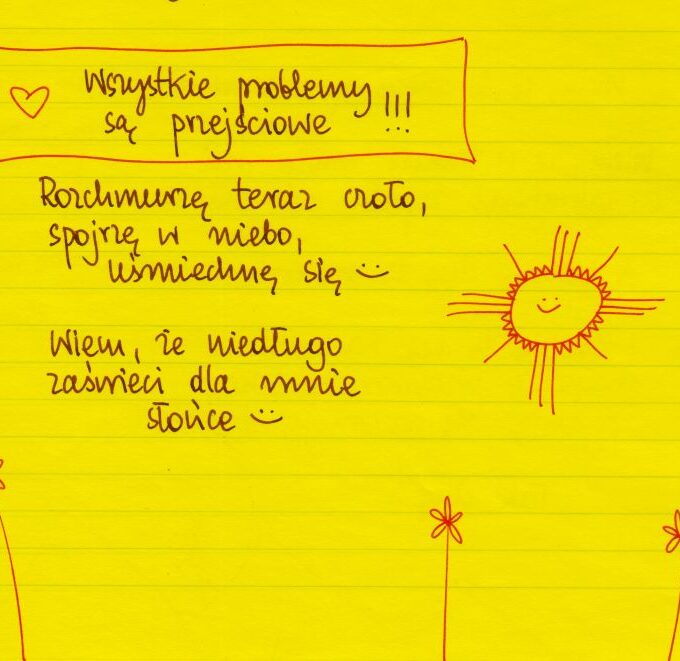 Wszystkie problemy
są przejściowe !!!
Rozchmurzę teraz czoło,
spojrzę w niebo,
uśmiechnę się :)
Wiem, że niedługo
zaświeci dla mnie
słońce :)